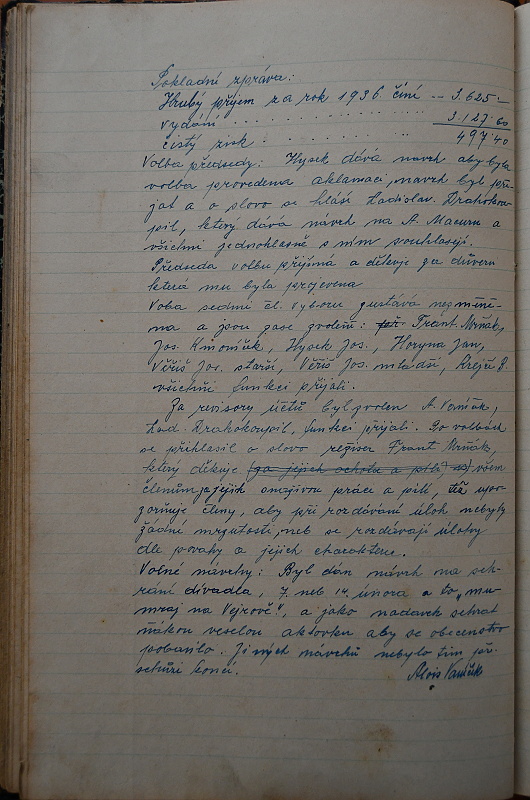 Pokladní zpráva:
Hrubý příjem za rok 1936 činí -- 3.625.-
vydání . . . . . . . . . . 3.127.60
čistý zisk . . . . . 497.40
Volba předsedy: Hysek dává návrh aby byla
volba provedena aklamací, návrh byl při-
jat a o slovo se hlásí Ladislav. Drahokou-
pil, který dává návrh na A. Macuru a
všichni jednohlasně s ním souhlasejí.
Předseda volbu přijímá a děkuje za důvěru
která mu byla projevena
Voba sedmi čl. výboru zustává nezměně-
na a jsou zase zvoleni: Frant. Mrňák,
Jos. Hysek Jos., Koryna Jan,
Věříš Jos. starší, Věříš Jos. mladší, Krejčí
všichni funkci přijali.
Za revisory účtů byl zvolen A. Vaníček,
Lad. Drahokoupil, funkci přijali. Po volbách
se přihlásil o slovo režisér Frant Mrňák,
který děkuje (za jejich ochotu a píli) všem
členům za jejich snaživou práce a píli, též upo-
zorňuje členy, aby při rozdávání úloh nebyly
žádné mrzutosti, neb se rozdávají úlohy
dle povahy a jejich charaktere.
Volné návrhy: Byl dán návrh na seh-
rání divadla, 7. neb 14. února a to „mu-
mraj na Vejrově", a jako nadavek sehrát
ňákou veselou aktovku aby se obecenstvo
pobavilo. Jiných návrhů nebylo tím je
schůze končí. Alois Vaníček